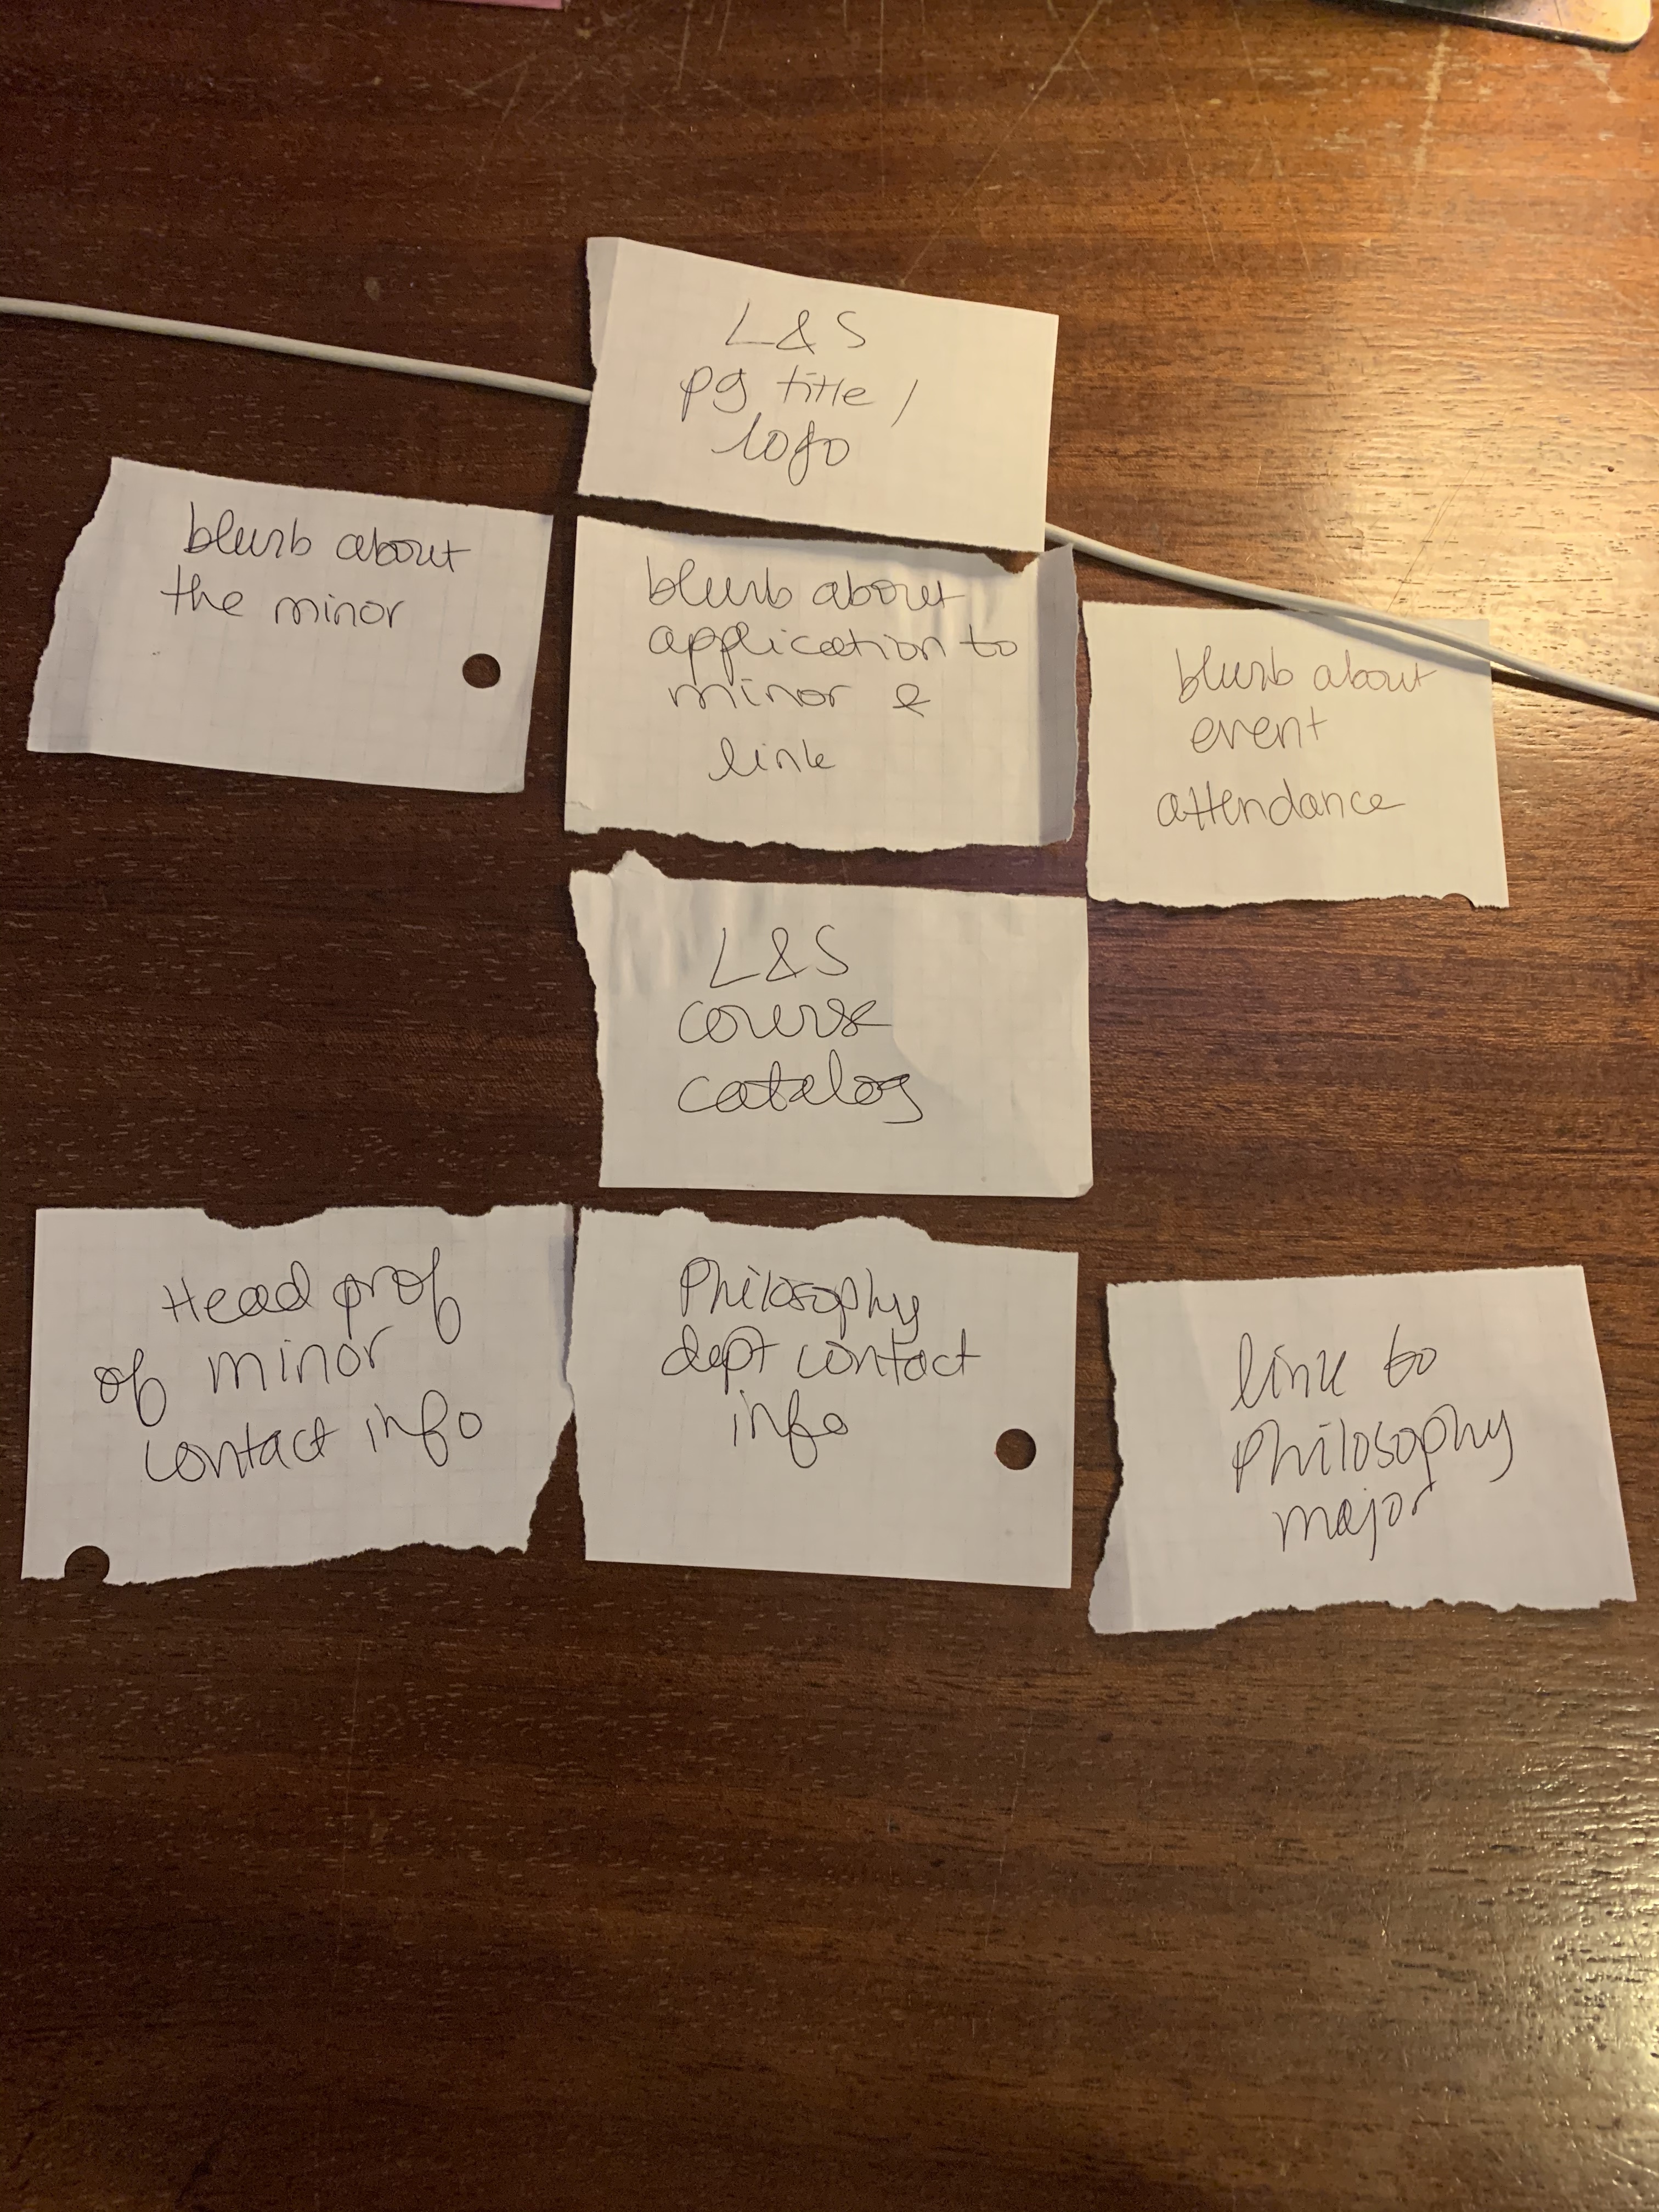 L&S
pg title /
logo
blurb about
the minor
blurb about
application to
minor &
link
blurb about
event
attendance
L&S
course
catalog
Head prof
of minor
contact info
Philosophy
dept contact
info
link to
Philosophy
major